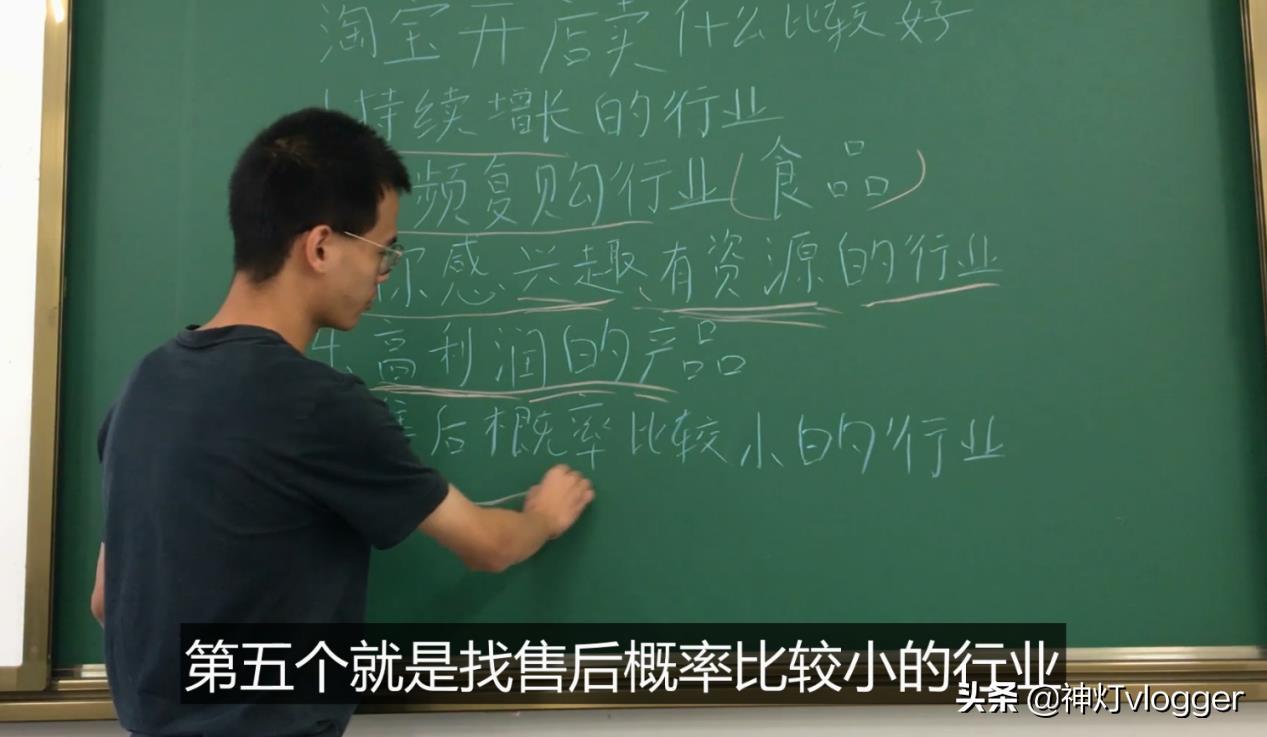 淘宝开店卖什么比较好
持续增长的行业
频复购行业(食品)
你感兴趣、有资源的行业
高利润的产品
售后概率比较小的行业
第五个就是找售后概率比较小的行业
头条 @神灯vlogger